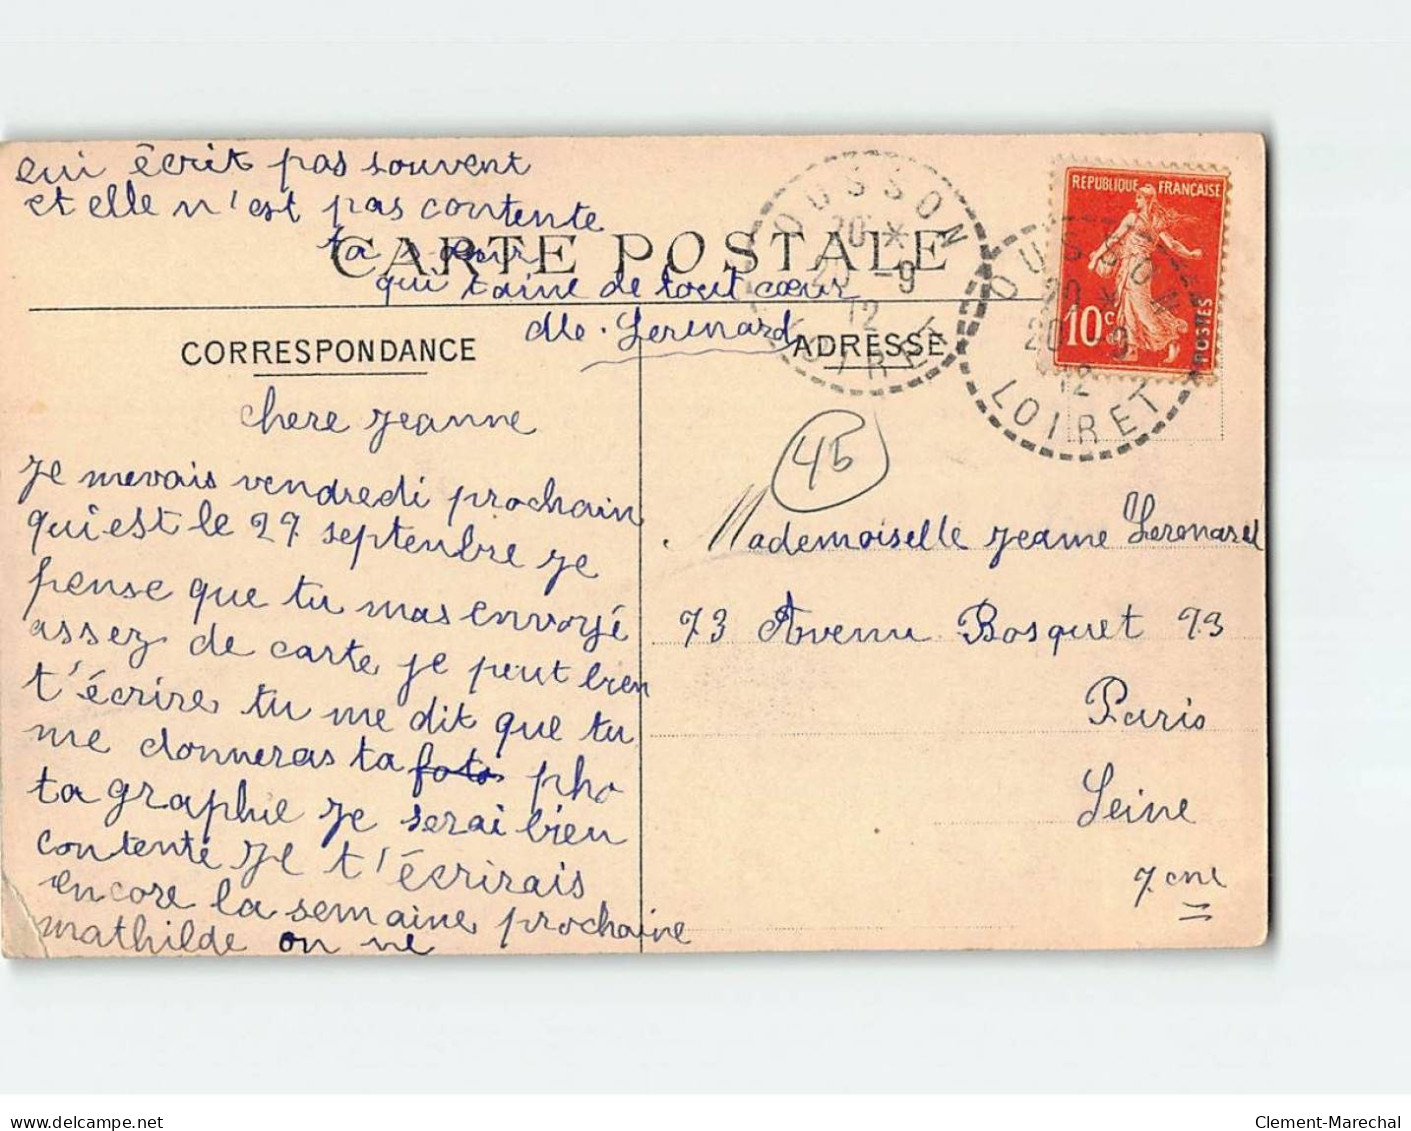 CARTE POSTALE
CORRESPONDANCE
ADRESSE
chere jeanne
je mevais vendredi prochain
qui est le 27 septenbre je
pense que tu mas envoyé
assez de carte je peut bien
t'écrire tu me dit que tu
me donneras ta foto pho
tagraphie je serai bien
contente je t'écrirais
encore la semaine prochaine
mathilde on ne
lui écrit pas souvent
et elle n'est pas contente
ta sœur
qui t'aime de tout cœur
OUSSON
20 *
20 -9
12
LOIRET
REPUBLIQUE FRANÇAISE
10c
POSTES
OUSSON
20 *
20 -9
12
LOIRET
45
Mademoiselle jeanne
73 Avenue Bosquet 73
Paris
Seine
7.eme
delcampe.net
Clement-Marechal